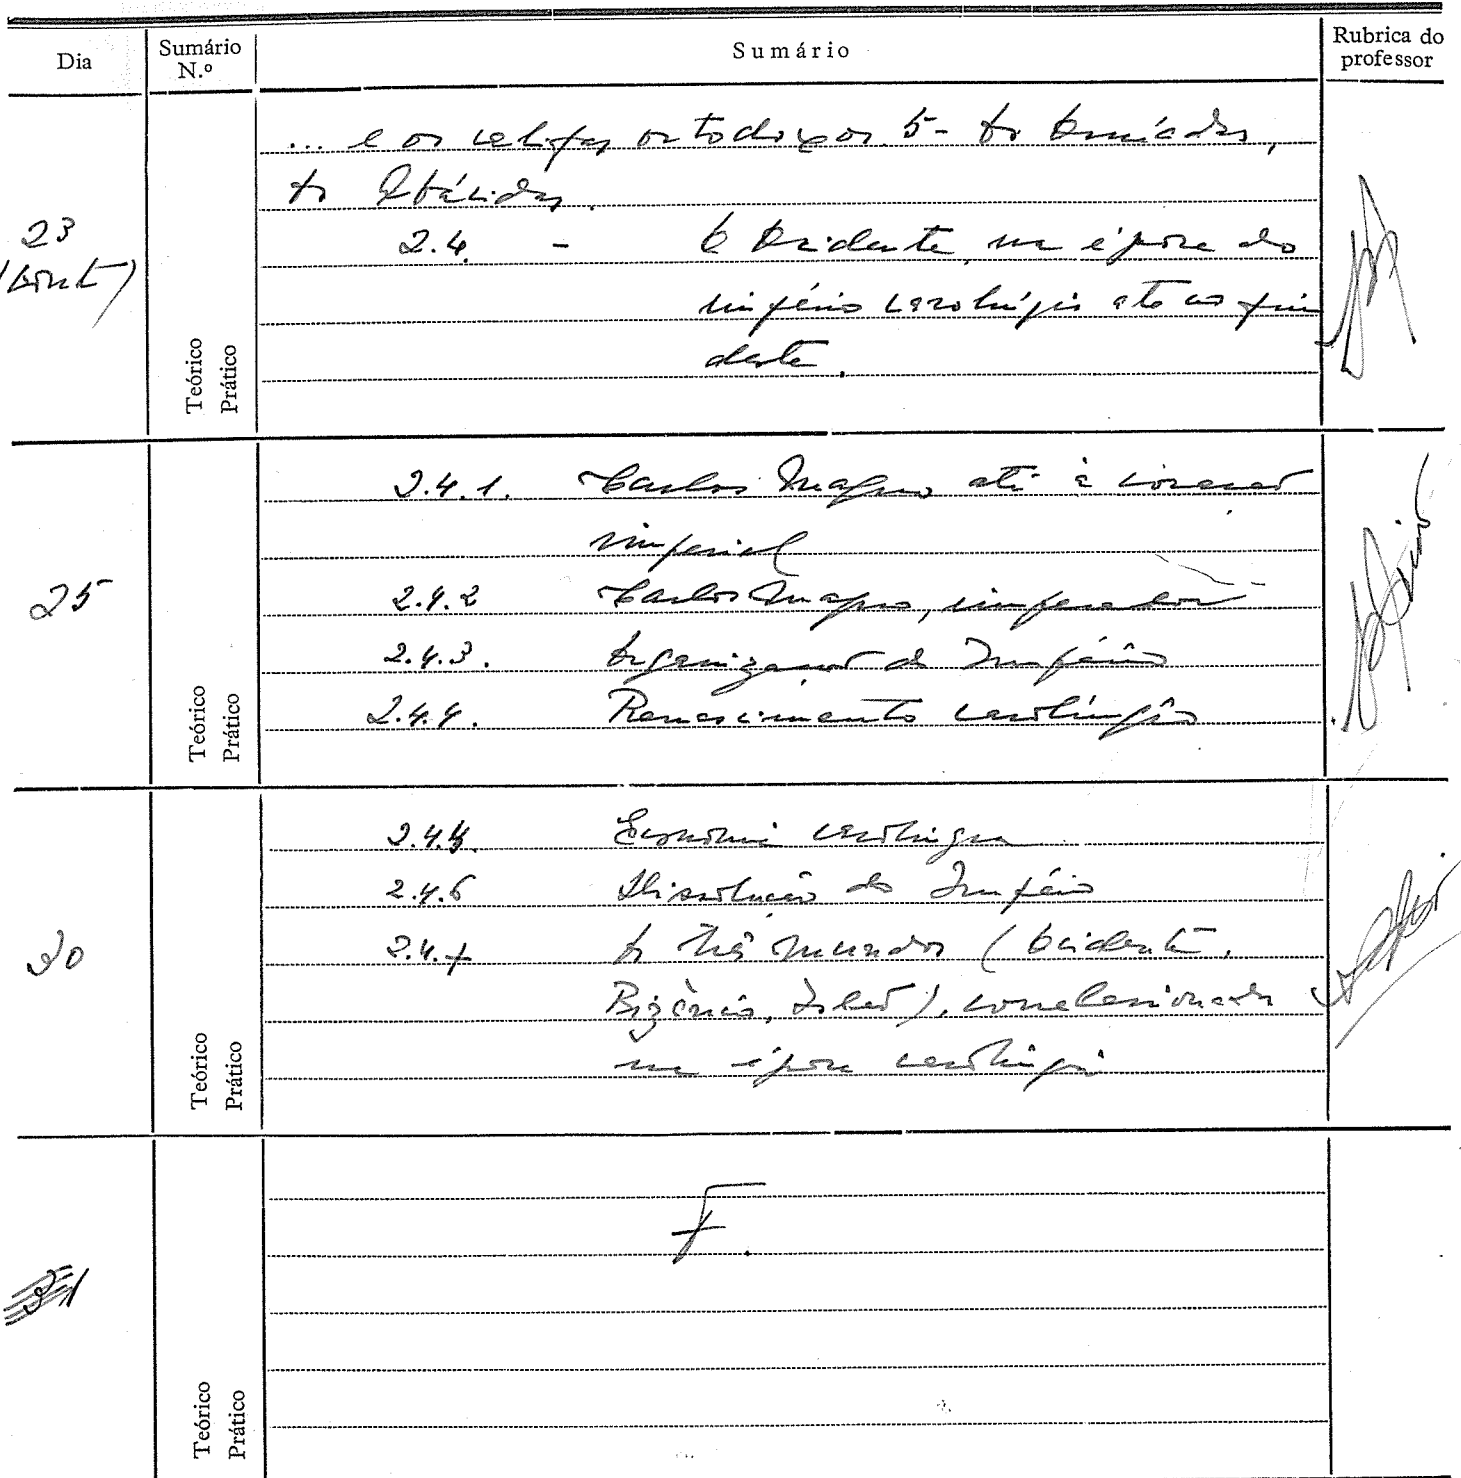 Dia
Sumário N.º
Sumário
Rubrica do professor
23
(Cont)
... e os califas ortodoxos. 5 - Os Omíadas,
os Abácidas.
2.4. - O Ocidente, na época do
império carolíngio até ao fim
deste.
Teórico
Prático
25
2.4.1. Carlos Magno até à coroação
imperial
2.4.2 Carlos Magno, imperador
2.4.3. Organização do Império
2.4.4. Renascimento carolíngio
Teórico
Prático
30
2.4.5. Economia carolíngia
2.4.6 Dissolução do Império
2.4.7 Os três mundos (Ocidente,
Bizâncio, Islão),
na época carolíngia
Teórico
Prático
31
F.
Teórico
Prático